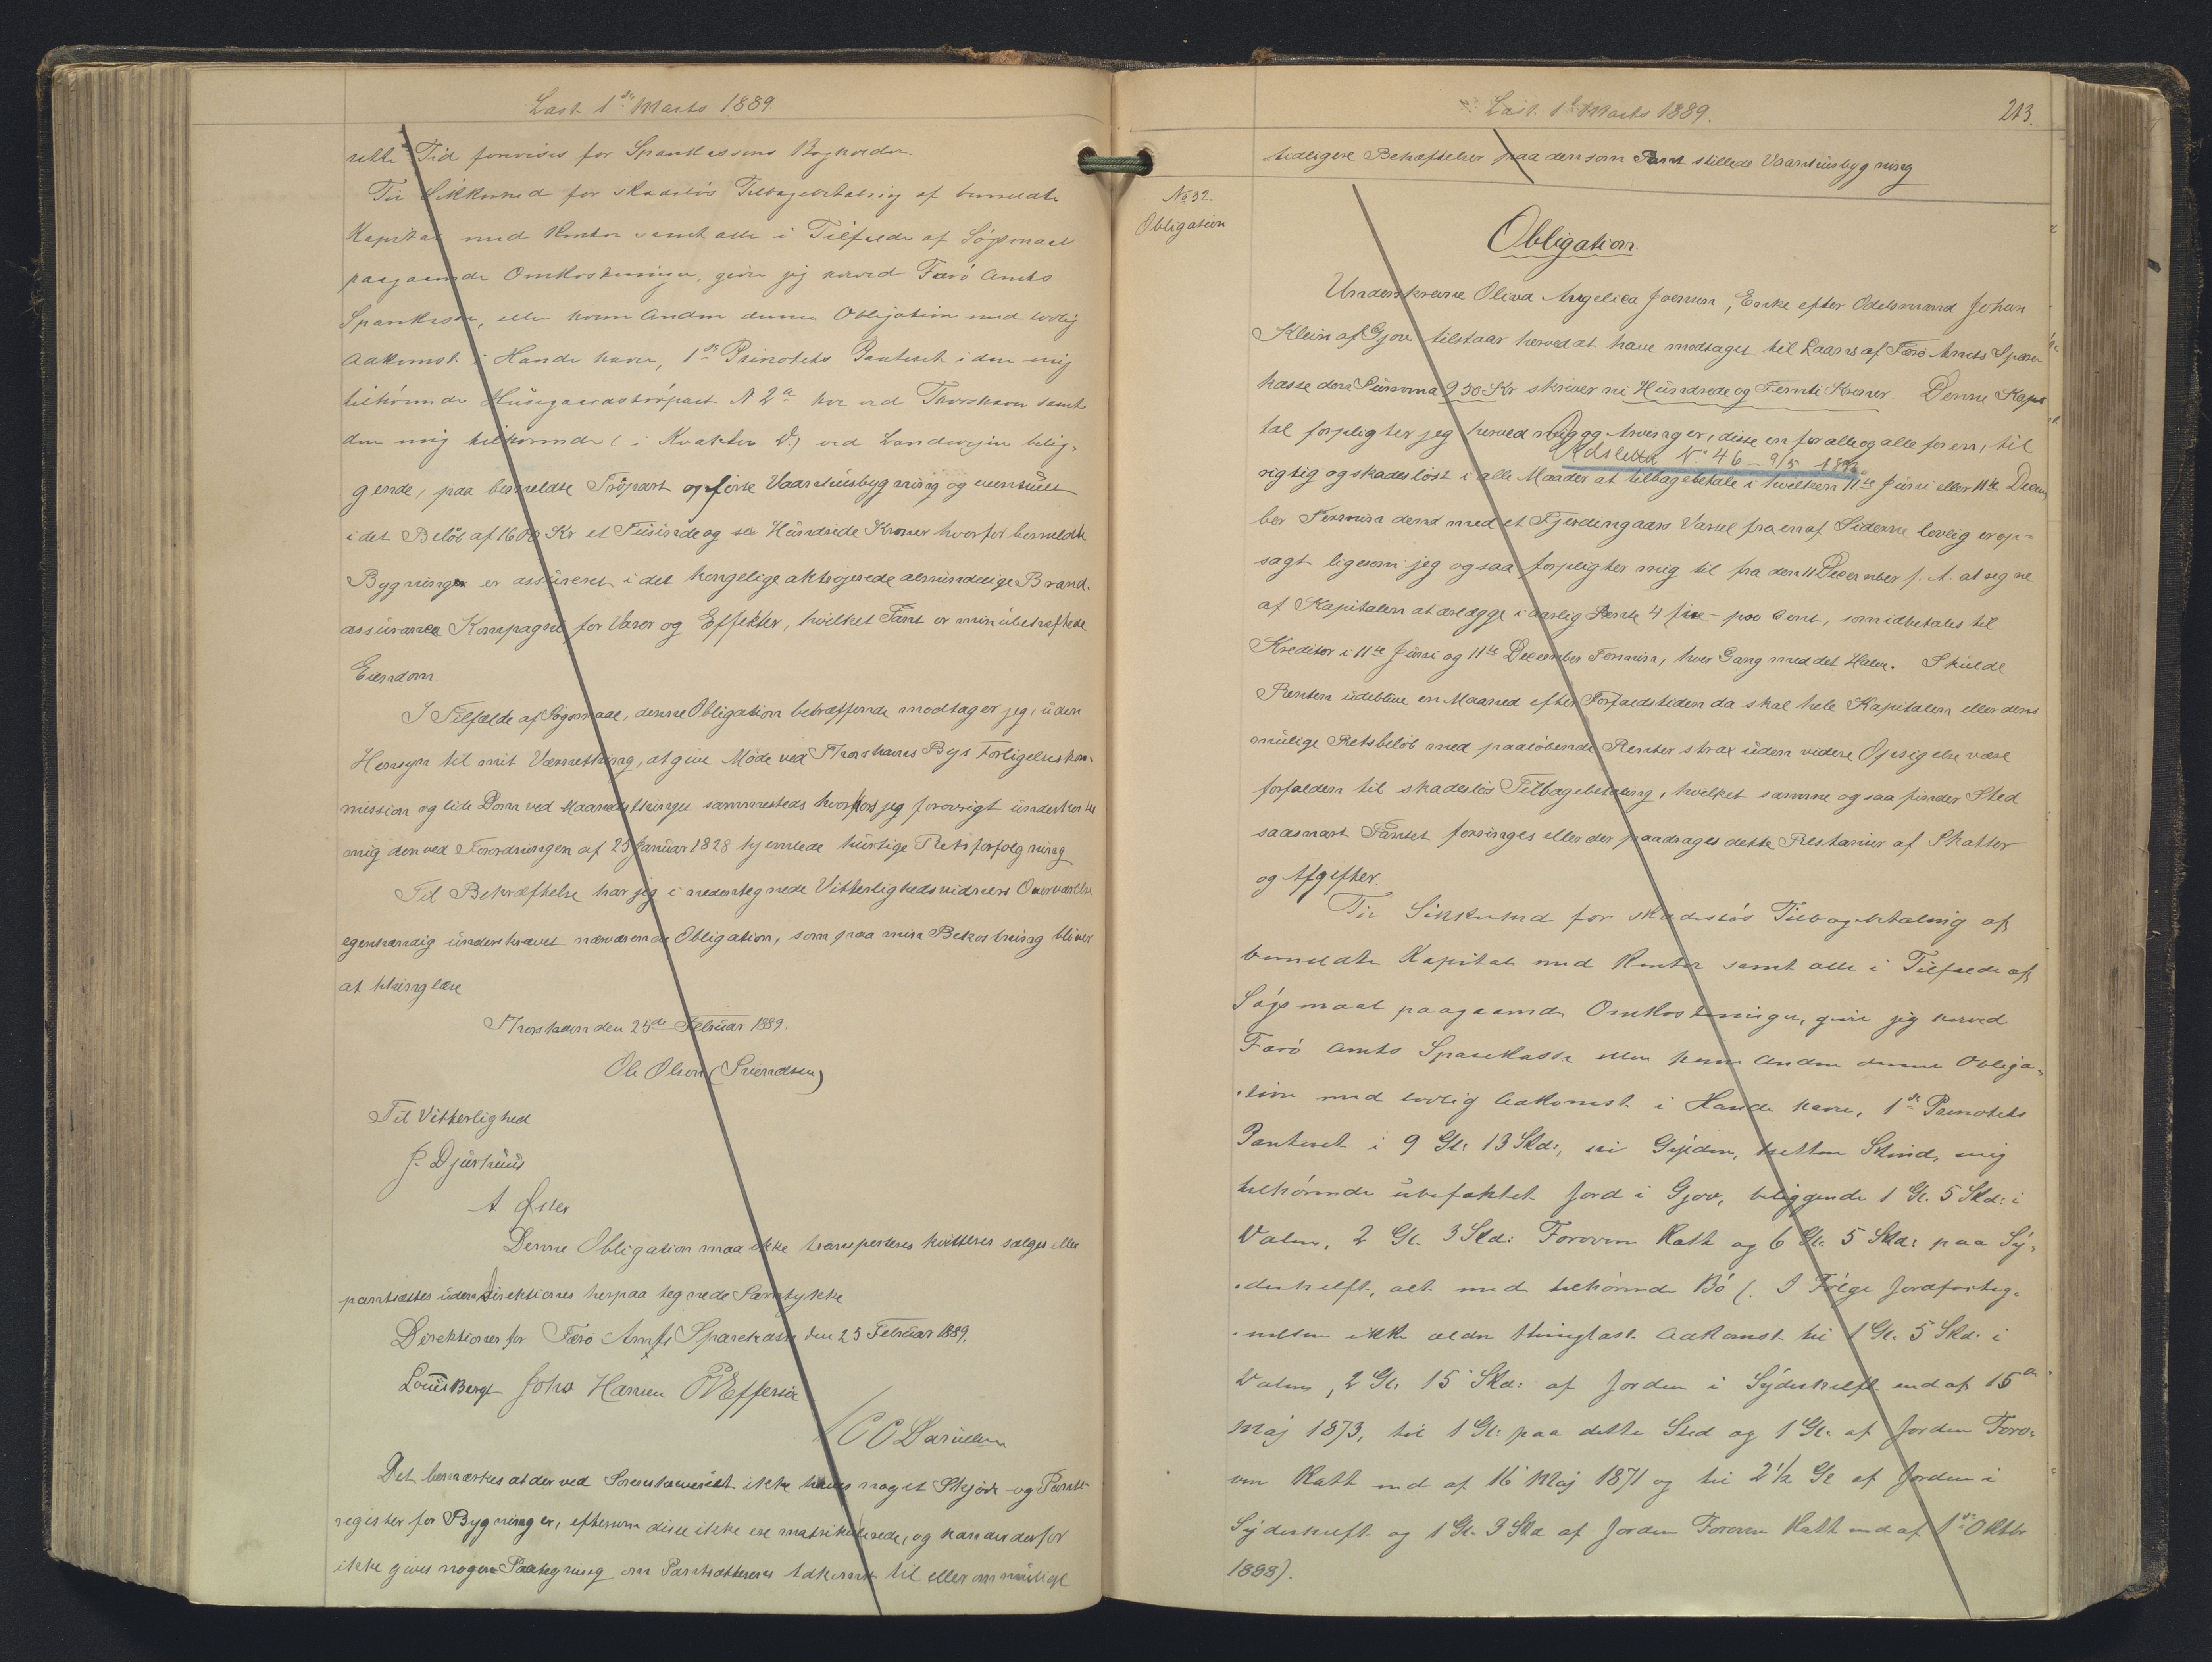 Læst 1ste Marts 1889.
rette Tid forevises for Sparekassens Bogholder.
Til Sikkerhed for skadeslös Tilbagebetaling af bemeldte
Kapital med Renter samt alle i Tilfælde af Sögsmaal
paagaaende Omkostninger, giver jeg herved Færö Amts
Sparekasse, eller hvem Anden denne Obligation med lovlig
Adkomst i Hænde haver, 1ste Prioritets Panteret i den mig
tilhörende Huusgaardströpart N 2a her ved Thorshavn samt
den mig tilhörende (i Kvarter D.) ved Landevejen belig-
gende, paa bemeldte Tröpart opførte Vaaningshuusbygning og eventuelt
i det Belöb af 1600 Kr et Tüsinde og sex Hündrede Kroner hvorfor bemeldte
Bygninger er assüreret i det kongelige oktrojerede almindelige Brand-
assürance Kompagni for Varer og Effekter, hvilket Pant er min übehæftede
Eiendom.
I Tilfælde af Sögsmaal, denne Obligation betræffende modtager jeg, üden
Hensyn til mit Værnething, at give Møde ved Thorshavns Byes Forligelseskom-
mission og lide Dom ved Maanedsthinget sammesteds hvorhos jeg forövrigt ünderkaster
mig den ved Forordningen af 25 Januar 1828 hjemlede hürtige Retsforfølgning
Til Bekræftelse har jeg i nedentegnede Vitterlighedsvidners Overværelse
egenhændig ünderskrevet nærværende Obligation, som paa min Bekostning bliver
at thinglæse
Thorshavn den 25de Februar 1889.
Ole Olsen (Svendsen)
Til Vitterlighed
J. Djurhuus
A Øster
Denne Obligation maa ikke transporteres kvitteres sælges eller
pantsættes uden Direktionens herpaa tegnede Samtykke
Direktionen for Færö Amts Sparekasse den 25 Februar 1889.
Louis Bergh Johs Hansen P Effersöe
/ C C Danielsen
Det bemærkes at der ved Sorenskriveriet ikke haves noget Skjöde- og Pante-
register for Bygninger, eftersom disse ikke ere matrikulerede, og kan der derfor
ikke gives nogen Paategning om Pantsætterens Adkomst til eller om muligt
Læst. 1ste Marts 1889.
213.
tidligere Behæftelser paa den som Pant stillede Vaaningshuusbygning
No 32.
Obligation
Obligation.
Underskrevne Olivia Angelica Joensen, Enke efter Odelsmand Johan
Klein af Gjov tilstaar herved at have modtaget til Laans af Færö Amts Spare-
kasse den Summa 950 Kr skriver ni Hündrede og Femti Kroner. Denne Kapi-
tal forpligter jeg herved mig og Arvinger, disse en for alle og alle for en, til
Udslettet No 46 - 9/5 1893.
rigtig og skadeslöst i alle Maader at tilbagebetale i hvilken 11te Jüni eller 11te Decem-
ber Termin dend med et Fjerdingaars Varsel fra en af Siderne lovlig er op-
sagt ligesom jeg ogsaa forpligter mig til fra den 11 December f. A. at regne
af Kapitalen at erlægge i aarlig Rente 4 fire pro Cent, som indbetales til
Kreditor i 11te Jüni og 11te December Termin, hver Gang med det Halve. Skulde
Renten üdeblive en Maaned efter Forfaldstiden da skal hele Kapitalen eller dens
mülige Restbelöb med paalöbende Renter strax üden videre Opsigelse være
forfalden til skadeslös Tilbagebetaling, hvilket samme ogsaa finder Sted
saasnart Pantet forringes eller der paadrages dette Restancer af Skatter
og Afgifter.
Til Sikkerhed for skadeslös Tilbagebetaling af
bemeldte Kapital med Renter samt alle i Tilfælde af
Sögsmaal paagaaende Omkostninger, giver jeg herved
Færö Amts Sparekasse eller hvem Anden denne Obliga-
tion med lovlig Adkomst i Hænde haver, 1ste Prioritets
Panteret i 9 Gl: 13 Skd:, ni Gylden, tretten Skind, mig
tilhörende übehæftet Jord i Gjov, beliggende 1 Gl. 5 Skd: i
Valen, 2 Gl. 3 Skd: Foroven Katt og 6 Gl. 5 Skd: paa Sy-
derhelft, alt med tilhörende Bö (. I Fölge Jordforteg-
nelsen ikke ældre thinglæst Adkomst til 1 Gl. 5 Skd: i
Valen, 2 Gl: 15 Skd: af Jorden i Syderhelft end af 15de
Maj 1873, til 1 Gl. paa dette Sted og 1 Gl. af Jorden Foro-
ven Katt end af 16 Maj 1871 og til 2 1/2 Gl af Jorden i
Syderhelft og 1 Gl. 3 Skd af Jorden Foroven Katt end af 1ste Oktbr
1888).